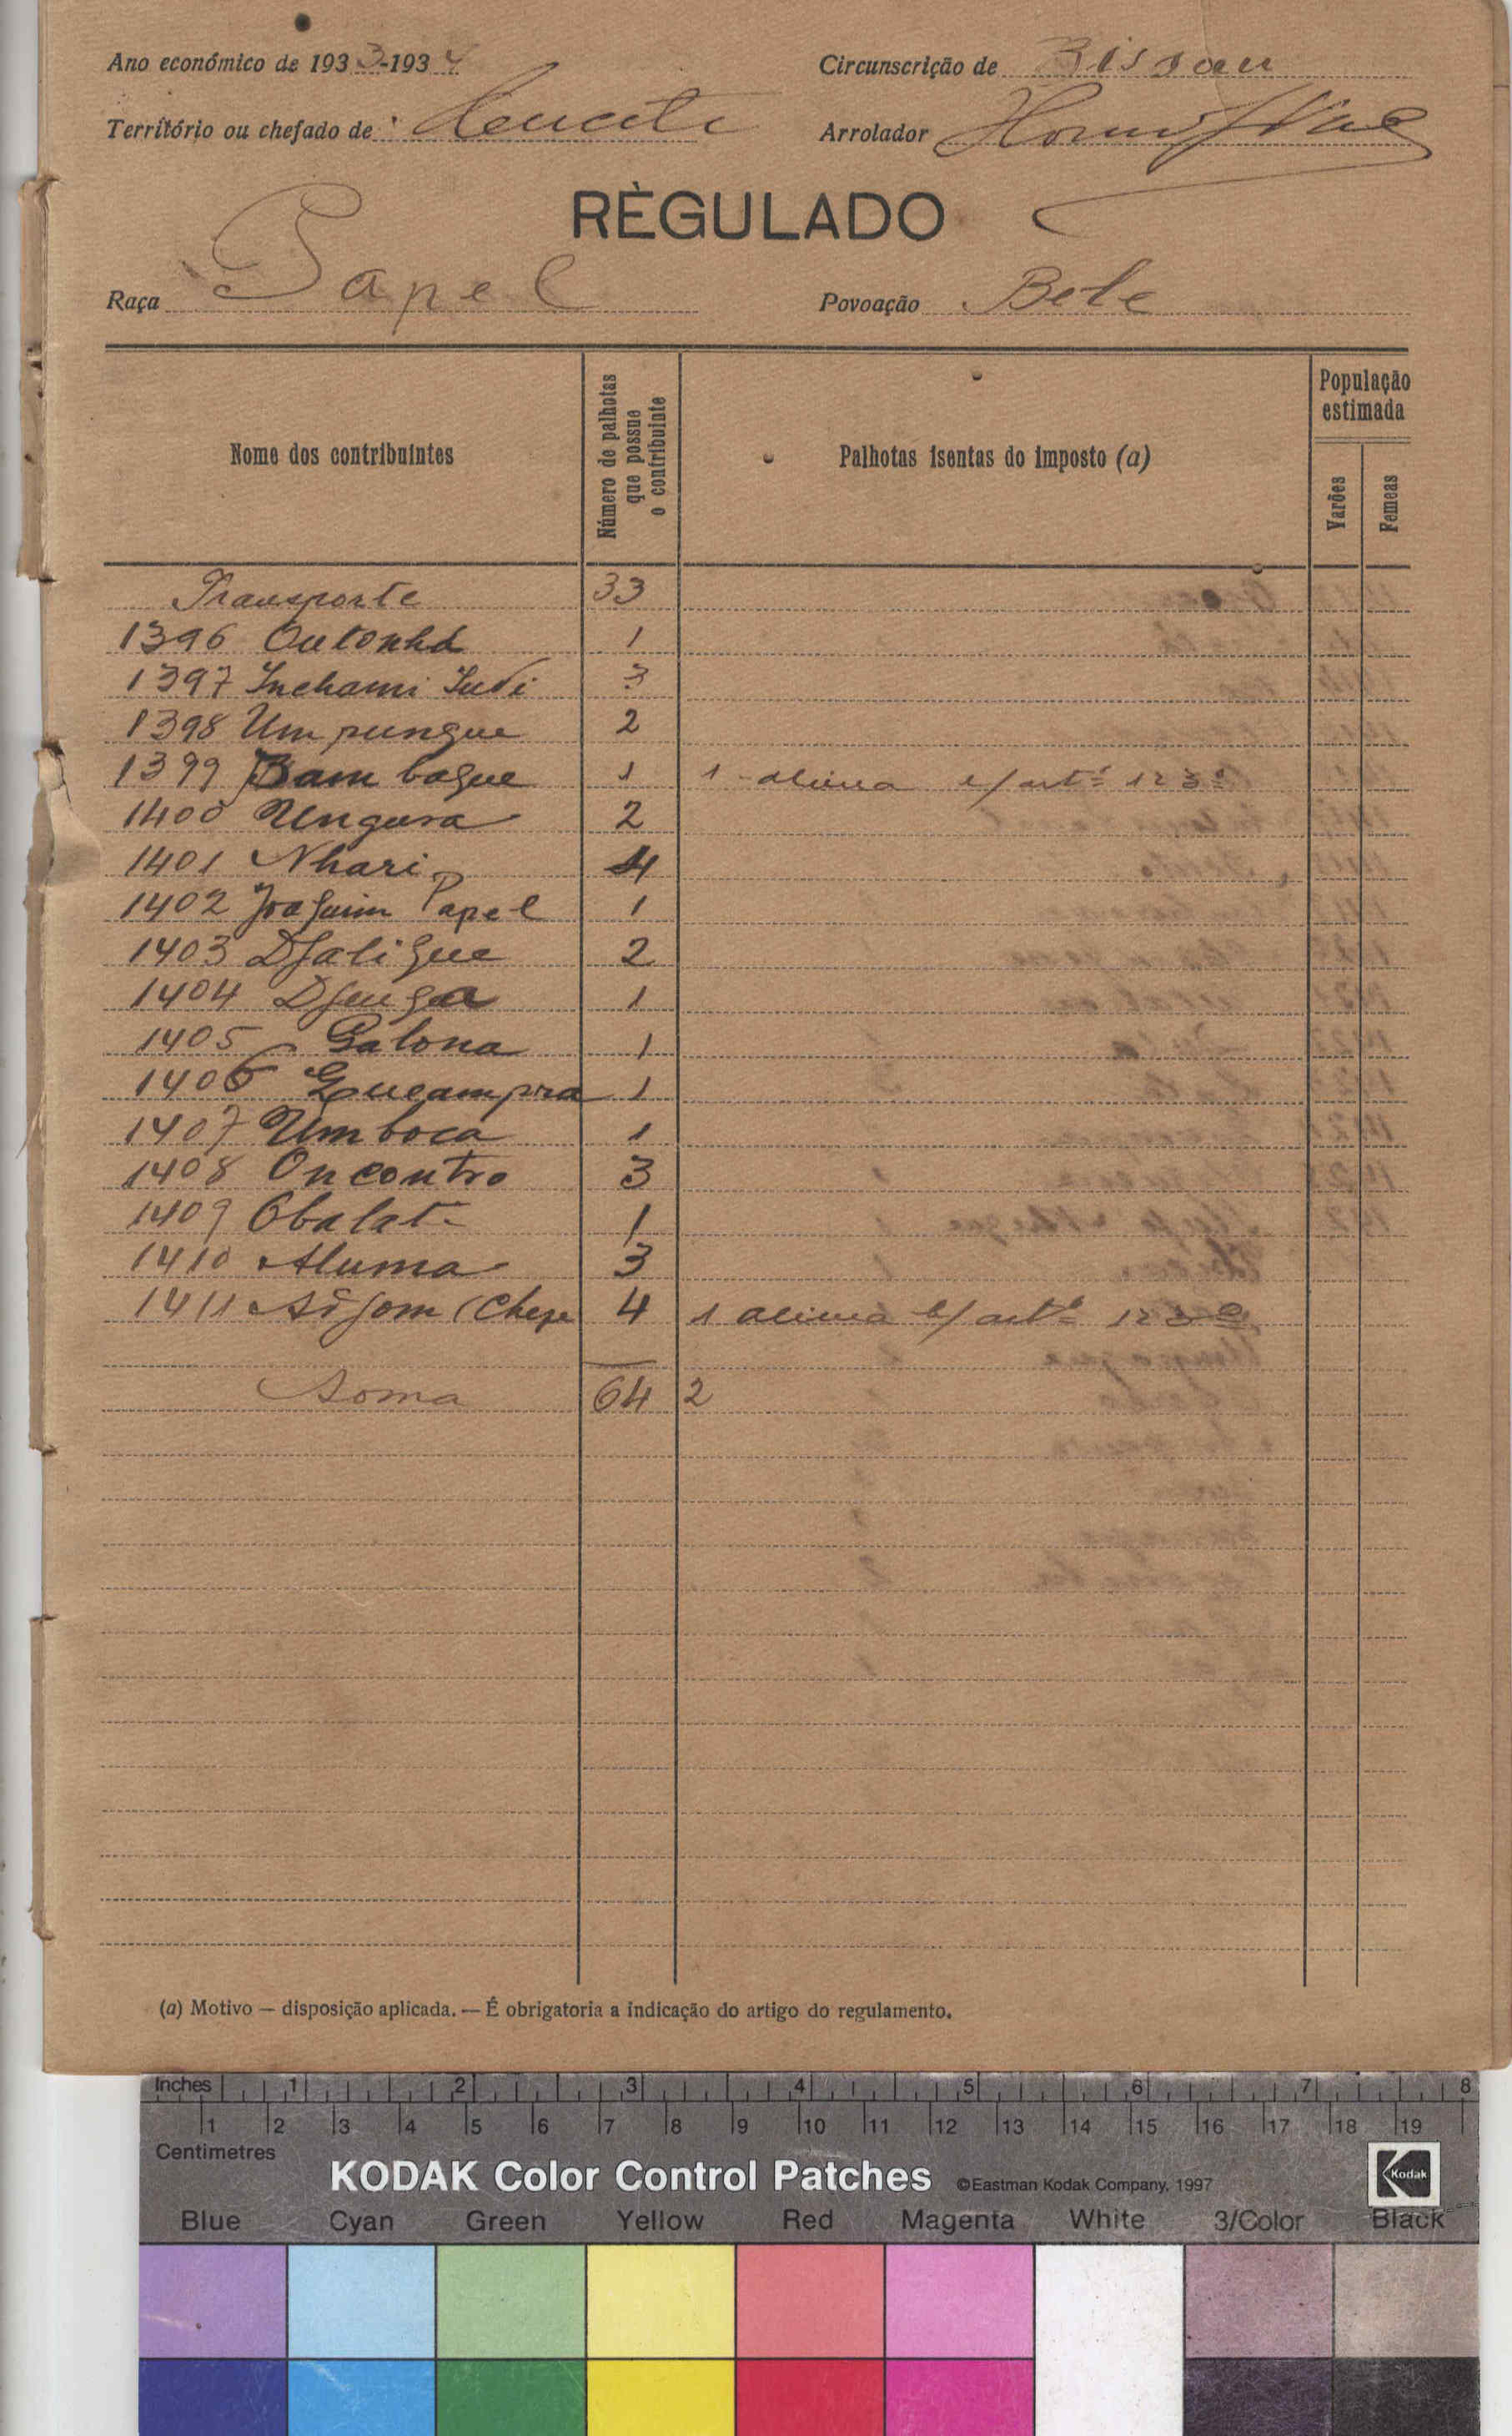 Ano económico de 1933-1934 Circunscrição de Bissau
Território ou chefado de Arrolador
RÈGULADO
Raça Papel Povoação Bele
Nome dos contribuintes
Número de palhotas que possue o contribuinte
Palhotas isentas do imposto (a)
População estimada
Varões
Femeas
Transporte 33
1396 Outonhá 1
1397 Inchami 3
1398 Um pungue 2
1399 Bam bague 1 1 alinea e/ artº 123º
1400 Ungura 2
1401 Nhari 4
1402 Joaquim Papel 1
1403 Djaligue 2
1404 Djenga 1
1405 Galona 1
1406 1
1407 Um boca 1
1408 Oncontro 3
1409 Obalat 1
1410 Aluma 3
1411 4 1 alinea e/ artº 123º
Soma 64 2
(a) Motivo — disposição aplicada. — É obrigatoria a indicação do artigo do regulamento.
Inches 1 2 3 4 5 6 7 8
1 2 3 4 5 6 7 8 9 10 11 12 13 14 15 16 17 18 19
Centimetres
KODAK Color Control Patches ©Eastman Kodak Company, 1997 Kodak
Blue Cyan Green Yellow Red Magenta White 3/Color Black